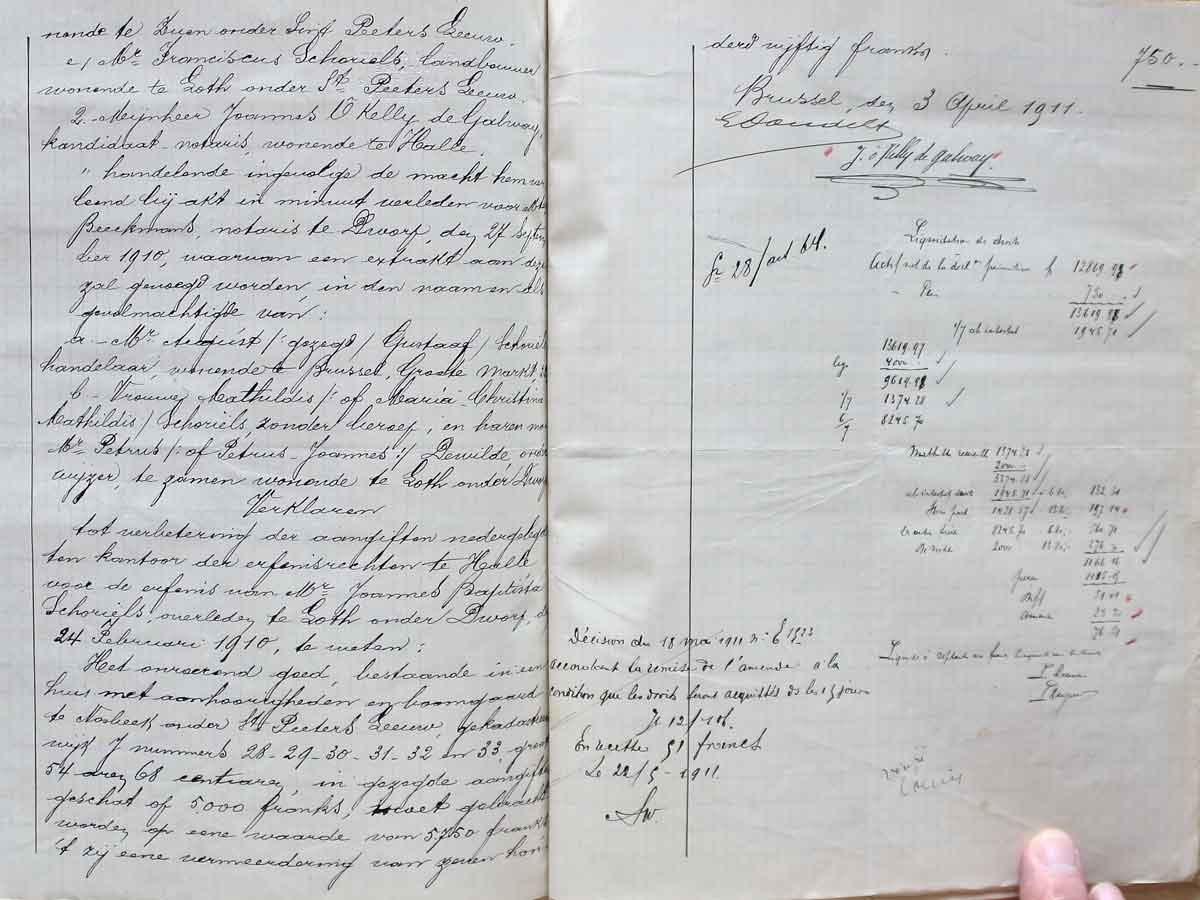 nende te Zuen onder Sint Peeters Leeuw.
c/ Mr. Franciscus Schoriels, landbouwer
wonende te Loth onder St. Peeters Leeuw.
2.- Mijnheer Joannes O'Kelly de Galway,
kandidaat-notaris, wonende te Halle.
" handelende ingevolge de macht hem ver
leend bij akt in minuut verleden voor Mter
Beeckmans, notaris te Dworp, den 27 Septem
ber 1910, waarvan een extrakt aan deze
zal gevoegd worden, in den naam en als
gevolmachtigde van:
a.- Mr. August /: gezegd / Gustaaf / Schoriels
handelaar, wonende te Brussel, Groote Markt,
b - Vrouwe Mathildis /: of Maria-Christina
Mathildis / Schoriels, zonder beroep, en haren man
Mr. Petrus /: of Petrus-Joannes :/ Dewilde, onder
wijzer, te zamen wonende te Loth onder Dworp
Verklaren
tot verbetering der aangiften nedergelegd
ten kantoor der erfenisrechten te Halle
voor de erfenis van Mr. Joannes Baptista
Schoriels, overleden te Loth onder Dworp, den
24 Februari 1910, te weten:
Het onroerend goed, bestaande in een
huis met aanhoorigheden en boomgaard
te Nosbeek onder St. Peeters Leeuw, gekadastreerd
wijk J nummers 28-29-30-31-32 en 33, groot
54 aren 68 centiaren, in gezegde aangiften
geschat op 5.000 franks, moet gebracht
worden op eene waarde van 5.750 franks
't zij eene vermeerdering van zeven hon-
derd vijftig franks. 750.-
Brussel, den 3 April 1911.
J. O'Kelly de Galway
Liquidation de droit
Gr 28/art 64.
Actif net de la décl. primitive f 12869.97
750
13619.97
1/7 ab intestat 1945.71
13619.97
leg. 4000
9619.97
1/7 1374.28
6/7 8245.70
Mathilde recueille 1374.28
2000
3374.28
ab intestat 1945.71
1428.57
8245.70
2000
Amende
Décision du 18 mai 1911 n: 61533
accordant la remise de l'amende à la
condition que les droits soient acquittés dans les 15 jours
Jl 12/116.
En recette 51 francs
Le 22/5 - 1911.